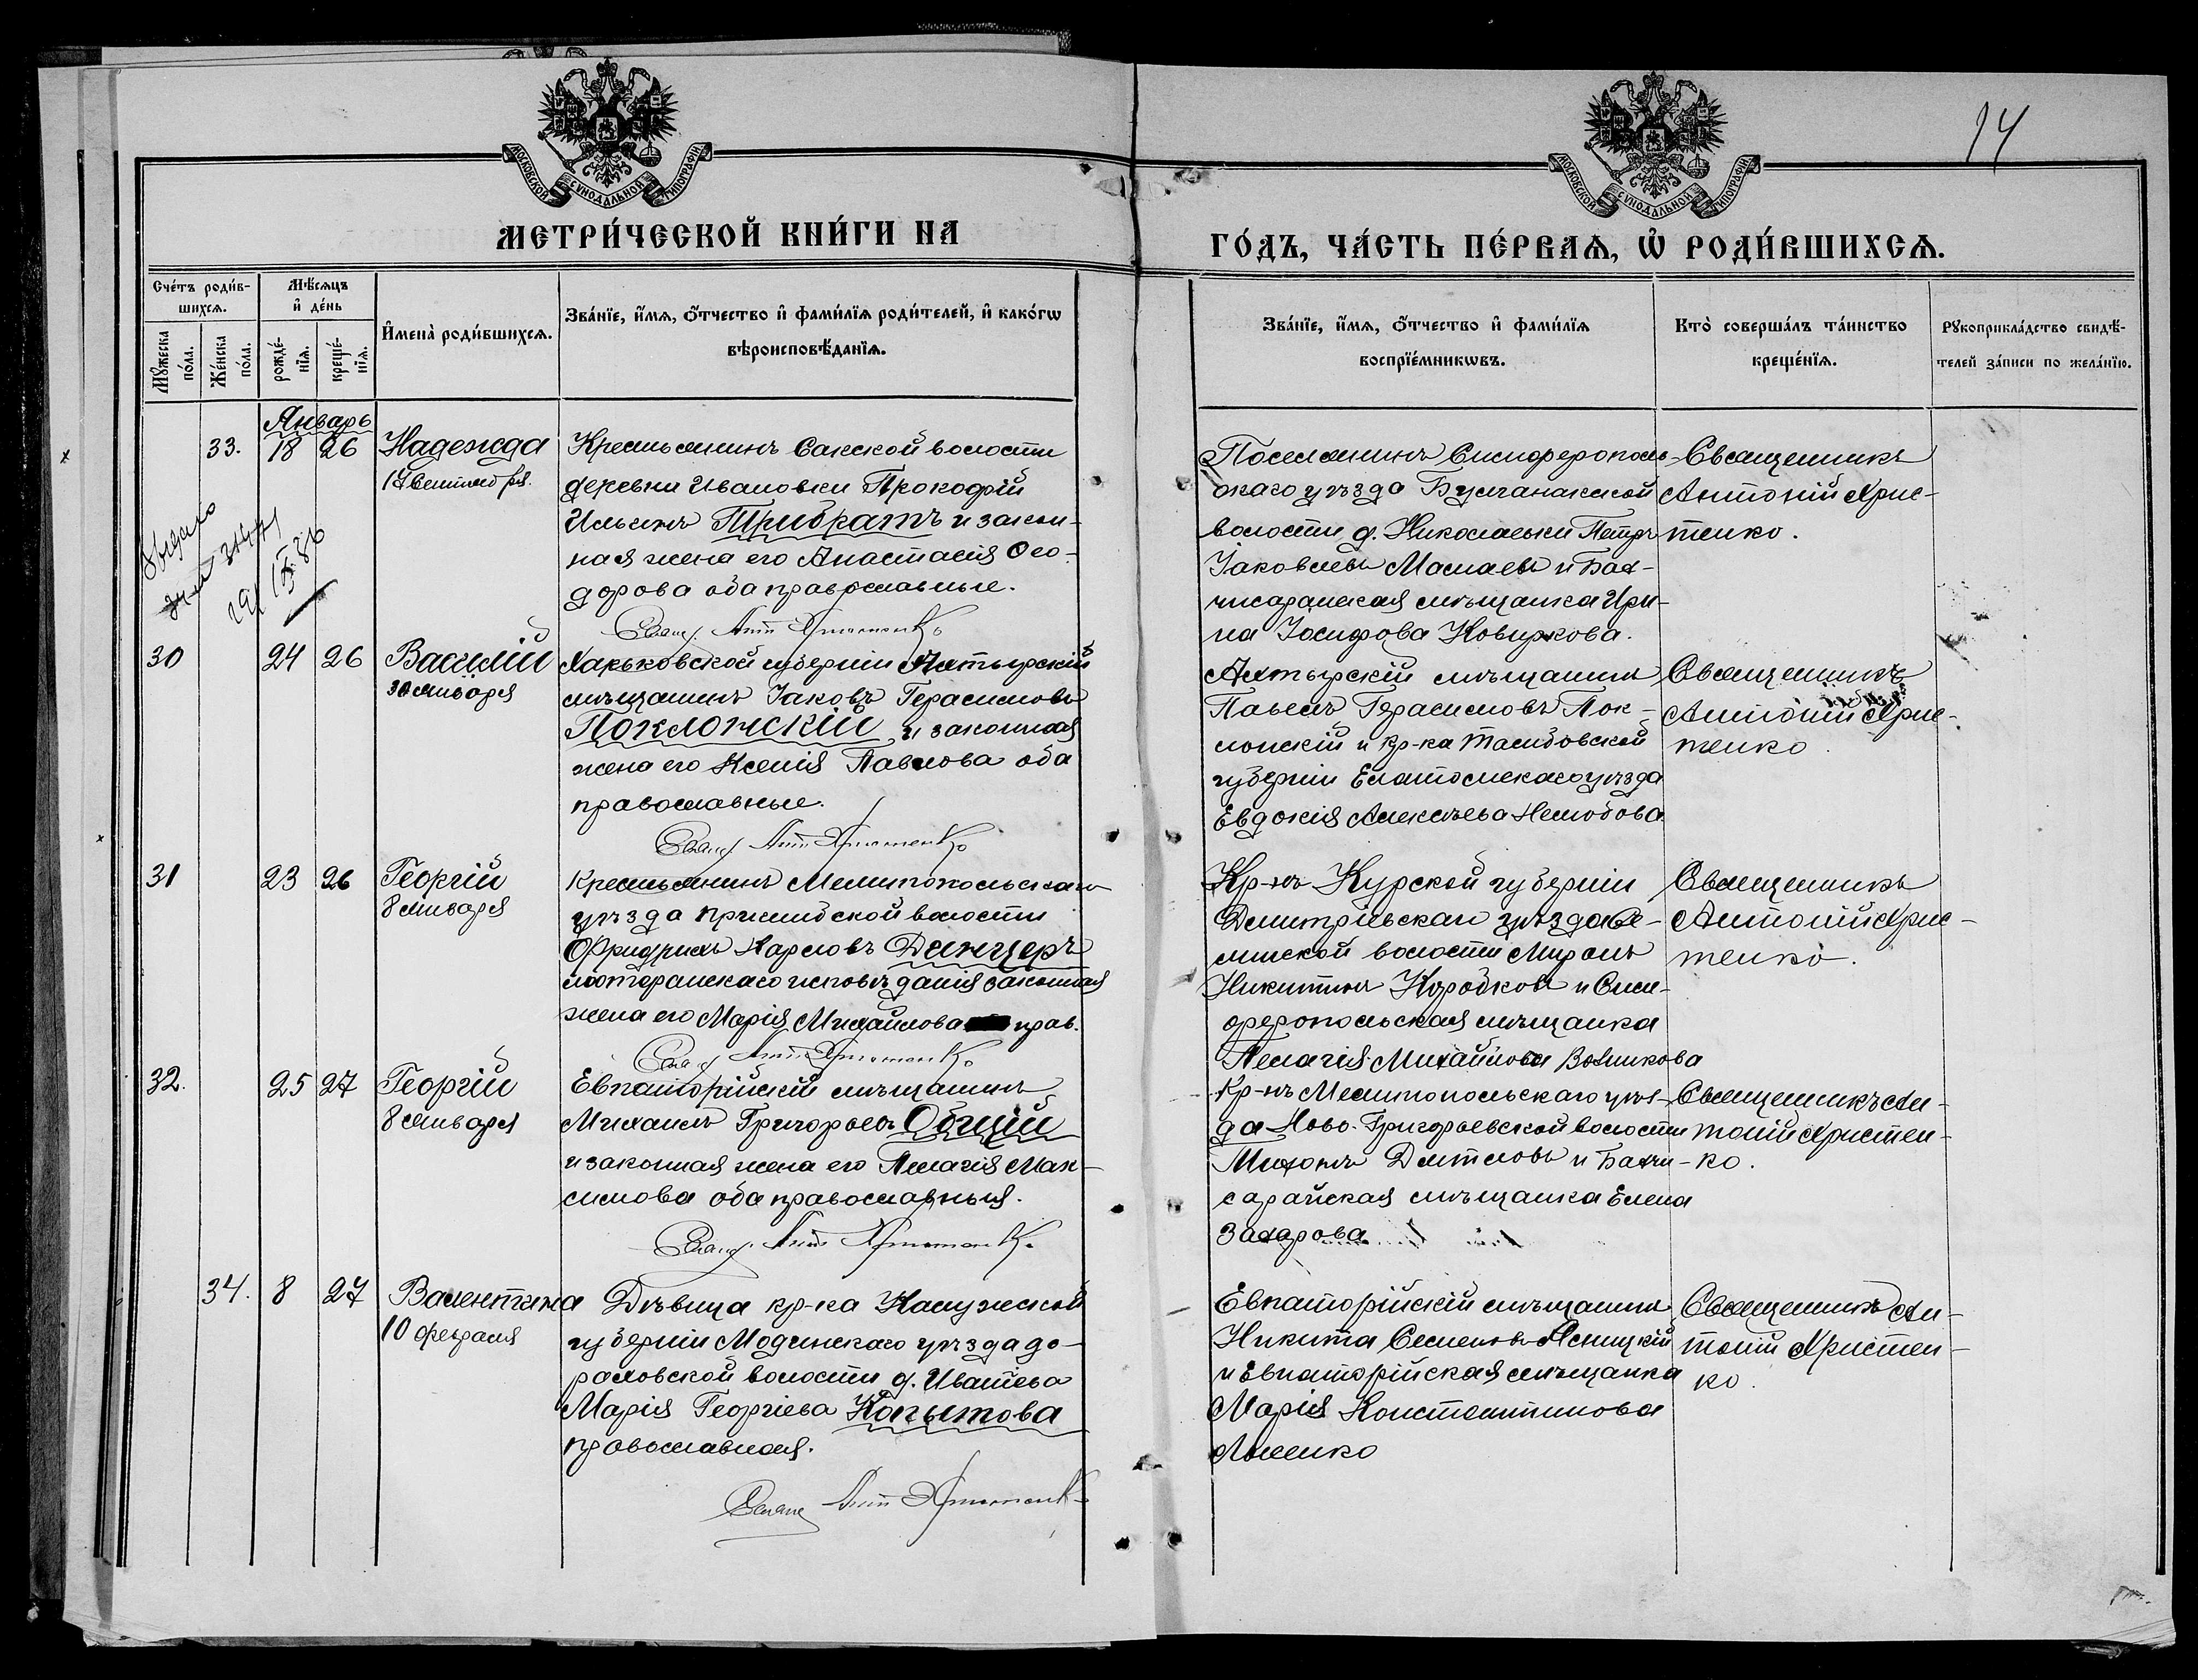 14
МОСКОВСКОЙ СѴНОДАЛЬНОЙ ТИПОГРАФІИ
МОСКОВСКОЙ СѴНОДАЛЬНОЙ ТИПОГРАФІИ
МЕТРИ́ЧЕСКОЙ КНИ́ГИ НА
ГО́ДЪ, ЧА́СТЬ ПЕ́РВАѦ, Ѡ҆ РОДИ́ВШИХСѦ.
Сче́тъ роди́в-
шихсѧ.
Мꙋ́жеска по́ла.
Же́нска по́ла.
Мѣ́сѧцъ
и҆ де́нь
рожде́-
нїѧ.
креще́-
нїѧ.
И҆мена̀ роди́вшихсѧ.
Зва́нїе, и҆́мѧ, ѻ҆́тчество и҆ фами́лїѧ роди́телей, и҆ како́гѡ
вѣроисповѣ́данїѧ.
Зва́нїе, и҆́мѧ, ѻ҆́тчество и҆ фами́лїѧ
воспрїе́мникѡвъ.
Кто̀ соверша́лъ та́инство
креще́нїѧ.
Рꙋкоприкла́дство свидѣ́-
телей за́писи по жела́нїю.
Январь
33. 18 26 Надежда
Крестьянинъ Сакской волости
деревни Ивановки Прокофій
Ильинъ Прибратъ и закон-
ная жена его Анастасія Ѳео-
дорова оба православные.
Свящ. Ант Христенко
Поселянинъ Симферополь-
скаго уѣзда Булганакской
волости д. Николаевки Петръ
Іаковлевъ Мамаевъ и Бах-
чисарайская мѣщанка Ири-
на Іосифова Новикова.
Священникъ
Антоній Хрис-
тенко.
30 24 26 Василій
30 января
Харьковской губерніи Ахтырскій
мѣщанинъ Іаковъ Герасимовъ
Поклонскій и законная
жена его Ксенія Павлова оба
православные.
Свящ Ант Христенко
Ахтырскій мѣщанинъ
Павелъ Герасимовъ Пок-
лонскій и кр-ка Тамбовской
губерніи Елатомскаго уѣзда
Евдокія Алексѣева
Священникъ
Антоній Хрис-
тенко.
31 23 26 Георгій
8 января
Крестьянинъ Мелитопольскаго
уѣзда Пришибской волости
Фридрихъ Карловъ Динцеръ
лютеранскаго исповѣданія законная
жена его Марія Михайлова прав.
Свящ Ант Христенко
Кр-нъ Курской губерніи
Дмитріевскаго уѣзда
волости Миронъ
Никитинъ Коробковъ и Сим-
феропольская мѣщанка
Пелагія Михайлова
Священникъ
Антоній Хрис-
тенко.
32. 25 27 Георгій
8 января
Евпаторійскій мѣщанинъ
Михаилъ Григорьевъ Общій
и законная жена его Пелагія Мак-
симова оба православныя.
Свящ. Ант Христенко
Кр-нъ Мелитопольскаго уѣз-
да Ново-Григорьевской волости
и Бахчи-
сарайская мѣщанка Елена
Захарова
Священникъ Ан-
тоній Христен-
ко.
34. 8 27 Валентина
10 февраля
Дѣвица кр-ка Калужской
губерніи уѣзда
волости д.
Марія Георгіева Копытова
православная.
Свящ Ант Христенко
Евпаторійскій мѣщанинъ
Никита Семеновъ Ясницкій
и Евпаторійская мѣщанка
Марія Константинова
Священникъ Ан-
тоній Христен-
ко.